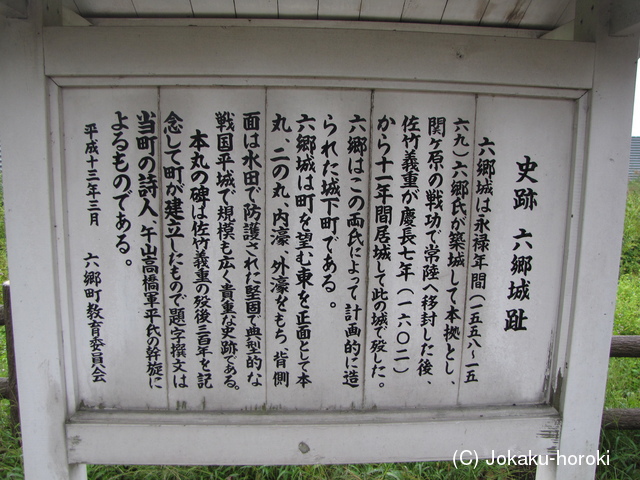 史跡 六郷城趾
六郷城は永禄年間（一五五八〜一五
六九）六郷氏が築城して本拠とし、
関ヶ原の戦功で常陸へ移封した後、
佐竹義重が慶長七年（一六〇二）
から十一年間居城して此の城で歿した。
六郷はこの両氏によって計画的に造
られた城下町である。
六郷城は町を望む東を正面として本
丸、二の丸、内濠、外濠をもち、背側
面は水田で防護された堅固で典型的な
戦国平城で規模も広く貴重な史跡である。
本丸の碑は佐竹義重の歿後三百年を記
念して町が建立したもので題字撰文は
当町の詩人、午山高橋軍平氏の斡旋に
よるものである。
平成十三年三月 六郷町教育委員会
(C) Jokaku-horoki